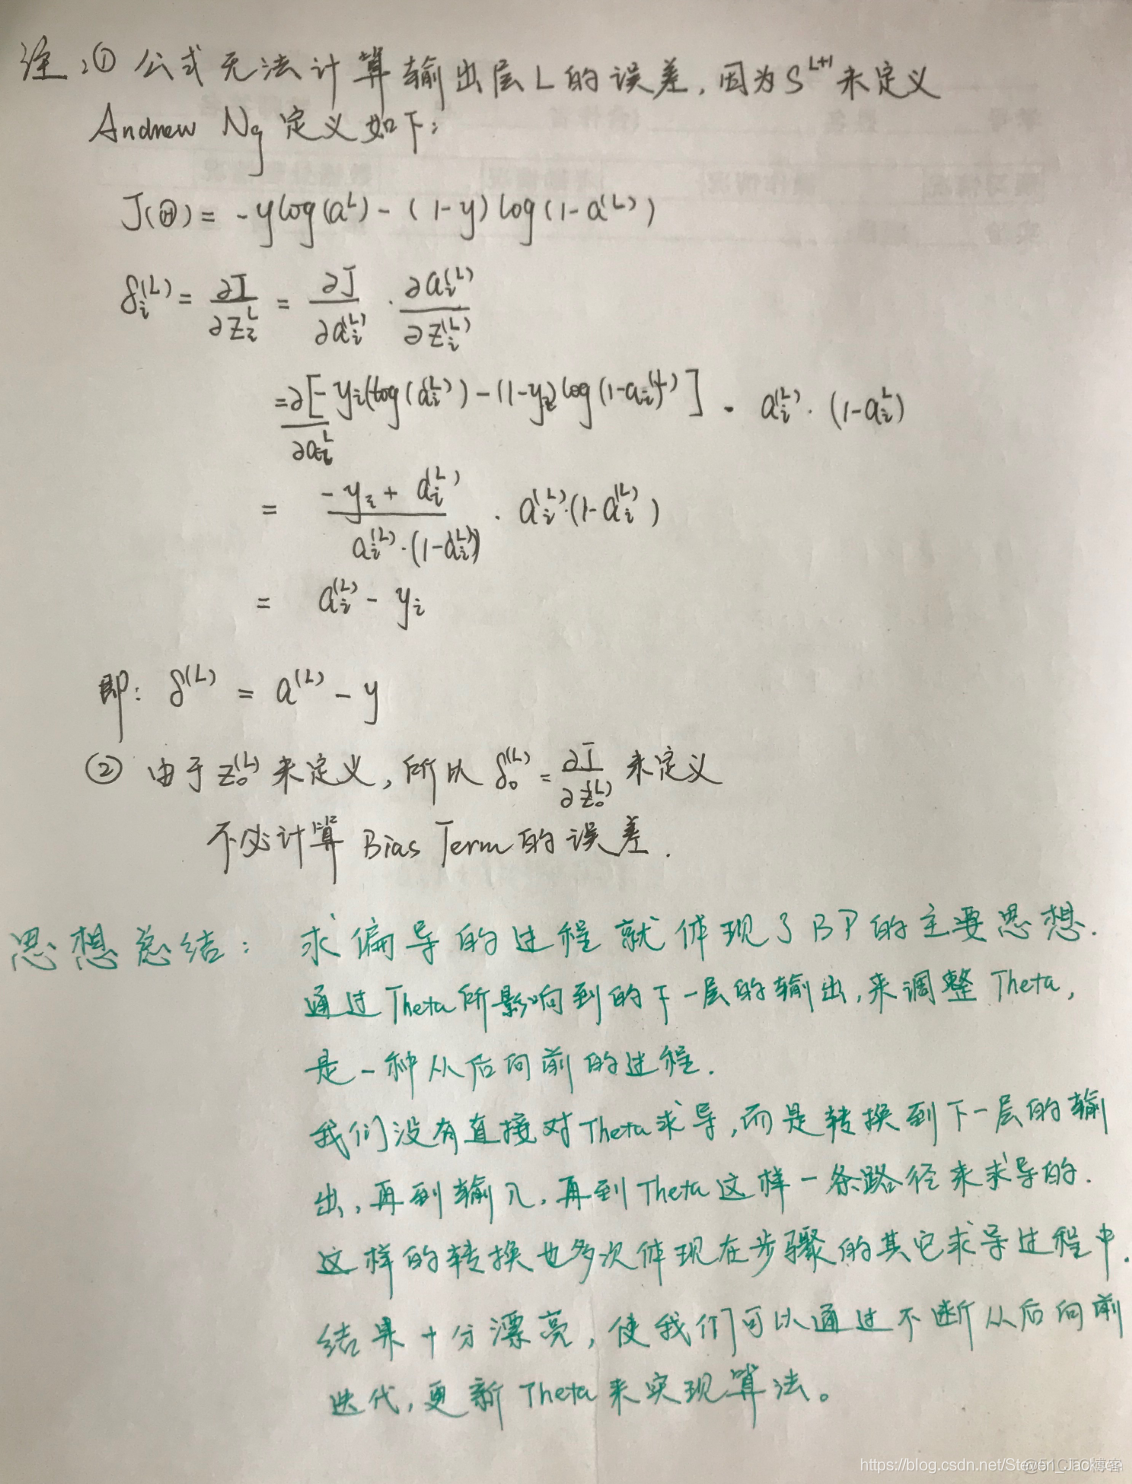 注:① 公式无法计算输出层L的误差,因为S^{L+1}未定义
Andrew Ng 定义如下:
J(Θ) = -ylog(a^L) - (1-y)log(1-a^{(L)})
δ_i^{(L)} = ∂J/∂z_i^L = ∂J/∂a_i^{(L)} · ∂a_i^{(L)}/∂z_i^{(L)}
= ∂[-y_i(log(a_i^{(L)}) - (1-y_i)log(1-a_i^{(L)})]/∂a_i^L · a_i^{(L)} · (1-a_i^L)
= (-y_i + a_i^{(L)})/(a_i^{(L)}·(1-a_i^{(L)})) · a_i^{(L)}·(1-a_i^{(L)})
= a_i^{(L)} - y_i
即: δ^{(L)} = a^{(L)} - y
② 由于z_0^{(L)}未定义,所以 δ_0^{(L)} = ∂J/∂z_0^{(L)} 未定义
不必计算 Bias Term的误差.
思想总结: 求偏导的过程就体现了BP的主要思想.
通过Theta所影响到的下一层的输出,来调整Theta,
是一种从后向前的过程.
我们没有直接对Theta求导,而是转换到下一层的输
出,再到输入,再到Theta这样一条路径来求导的.
这样的转换也多次体现在步骤的其它求导过程中.
结果十分漂亮,使我们可以通过不断从后向前
迭代,更新Theta来实现算法。
https://blog.csdn.net/Steven_Jackie